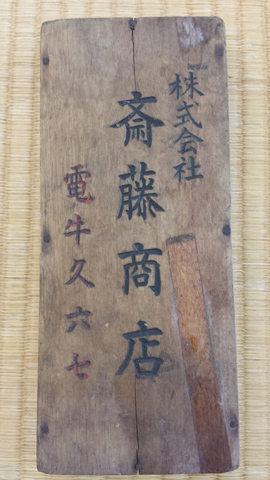 株式会社
斎藤商店
電牛久六七